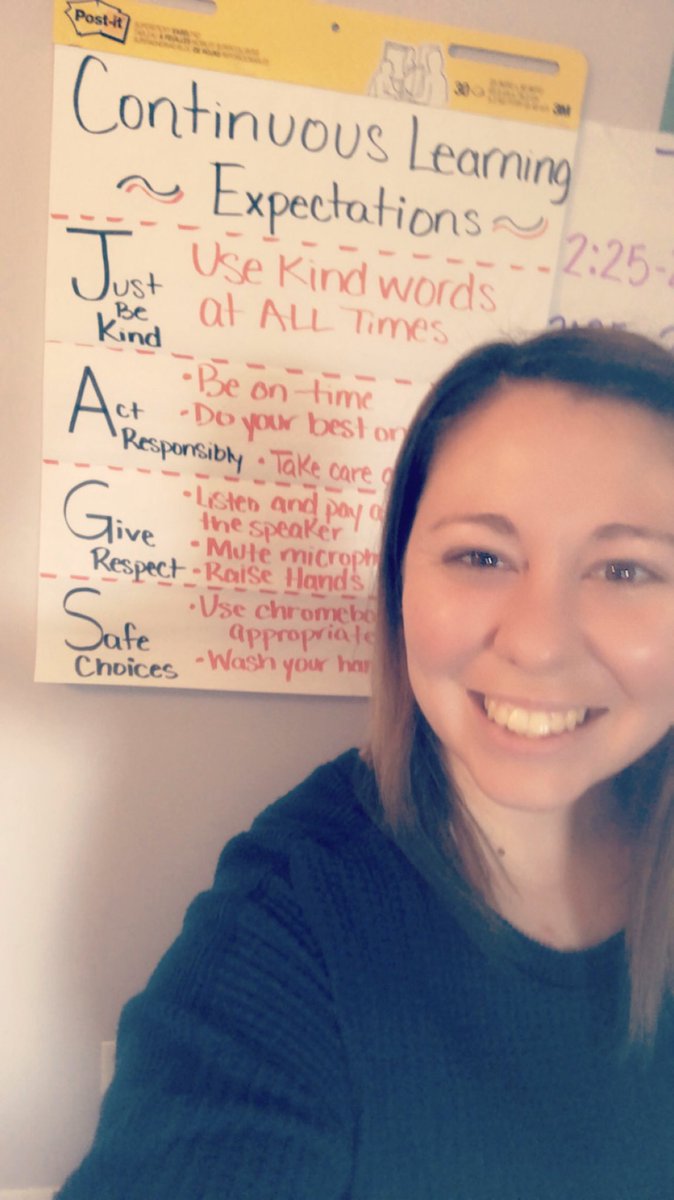 Post-it
30
3M
Continuous Learning
Expectations
Just
Be
Kind
Use Kind words
at ALL Times
Act
Responsibly
• Be on-time
• Do your best on
• Take care
Give
Respect
• Listen and pay
the speaker
• Mute
• Raise Hands
Safe
Choices
• Use
• Wash your
2:25-